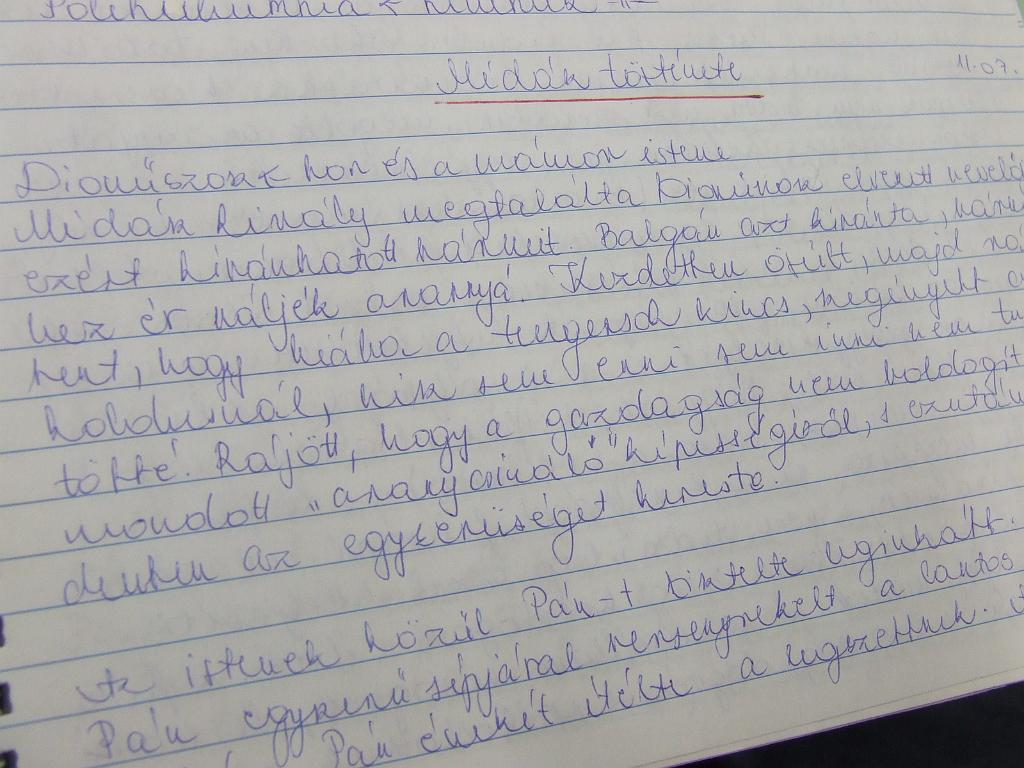 Polühümnia < himnuszok
Midász története
11.07.
Dionűszosz < bor és a mámor istene
Midász király megtalálta Dionüszosz elveszett nevelő
ezért kívánhatott bármit. Balgán azt kívánta, bármi
hez ér váljék arannyá. Kezdetben örült, majd rá
hogy hiába a tengersok kincs, szegényebb a
koldusnál, hisz sem enni sem inni nem tu
többé. Rájött, hogy a gazdagság nem boldogít
mondott „aranycsináló" képességéről, s ezután
denben az egyszerűséget kereste.
Az istenek közül Pán-t tisztelte leginkább.
Pán egyszerű sípjával versenyre kelt a lantos
Pán énekét ítélte a legszebbnek.